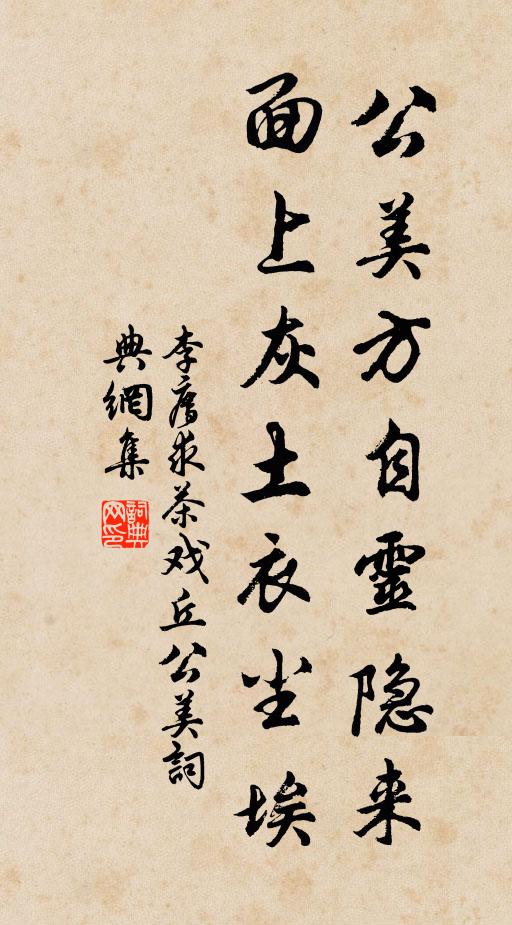 公美方自靈隐来
面上灰土衣尘埃
李膺求茶戏丘公美詞
典網集
詞典网印